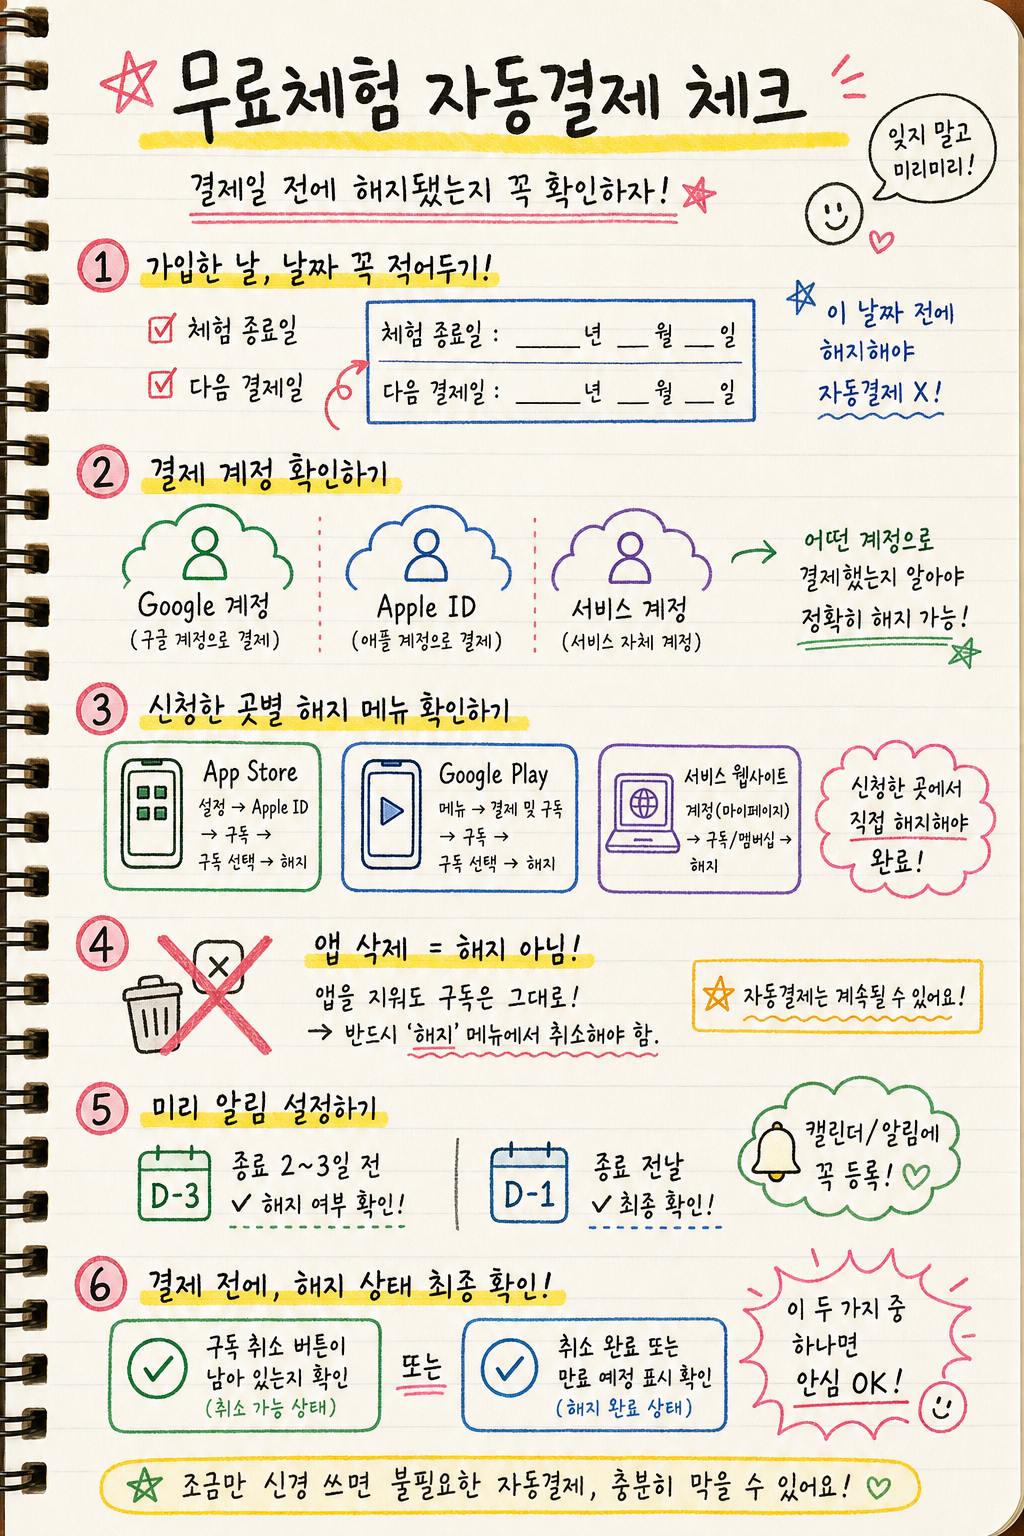 무료체험 자동결제 체크
잊지 말고
미리미리!
결제일 전에 해지됐는지 꼭 확인하자!
1 가입한 날, 날짜 꼭 적어두기!
체험 종료일
다음 결제일
체험 종료일 : ______년 ___월 ___일
다음 결제일 : ______년 ___월 ___일
이 날짜 전에
해지해야
자동결제 X!
2 결제 계정 확인하기
Google 계정
(구글 계정으로 결제)
Apple ID
(애플 계정으로 결제)
서비스 계정
(서비스 자체 계정)
어떤 계정으로
결제했는지 알아야
정확히 해지 가능!
3 신청한 곳별 해지 메뉴 확인하기
App Store
설정 → Apple ID
→ 구독 →
구독 선택 → 해지
Google Play
메뉴 → 결제 및 구독
→ 구독 →
구독 선택 → 해지
서비스 웹사이트
계정(마이페이지)
→ 구독/멤버십 →
해지
신청한 곳에서
직접 해지해야
완료!
4 앱 삭제 = 해지 아님!
앱을 지워도 구독은 그대로!
→ 반드시 '해지' 메뉴에서 취소해야 함.
자동결제는 계속될 수 있어요!
5 미리 알림 설정하기
D-3
종료 2~3일 전
✓ 해지 여부 확인!
D-1
종료 전날
✓ 최종 확인!
캘린더/알림에
꼭 등록!
6 결제 전에, 해지 상태 최종 확인!
구독 취소 버튼이
남아 있는지 확인
(취소 가능 상태)
또는
취소 완료 또는
만료 예정 표시 확인
(해지 완료 상태)
이 두 가지 중
하나면
안심 OK!
조금만 신경 쓰면 불필요한 자동결제, 충분히 막을 수 있어요!